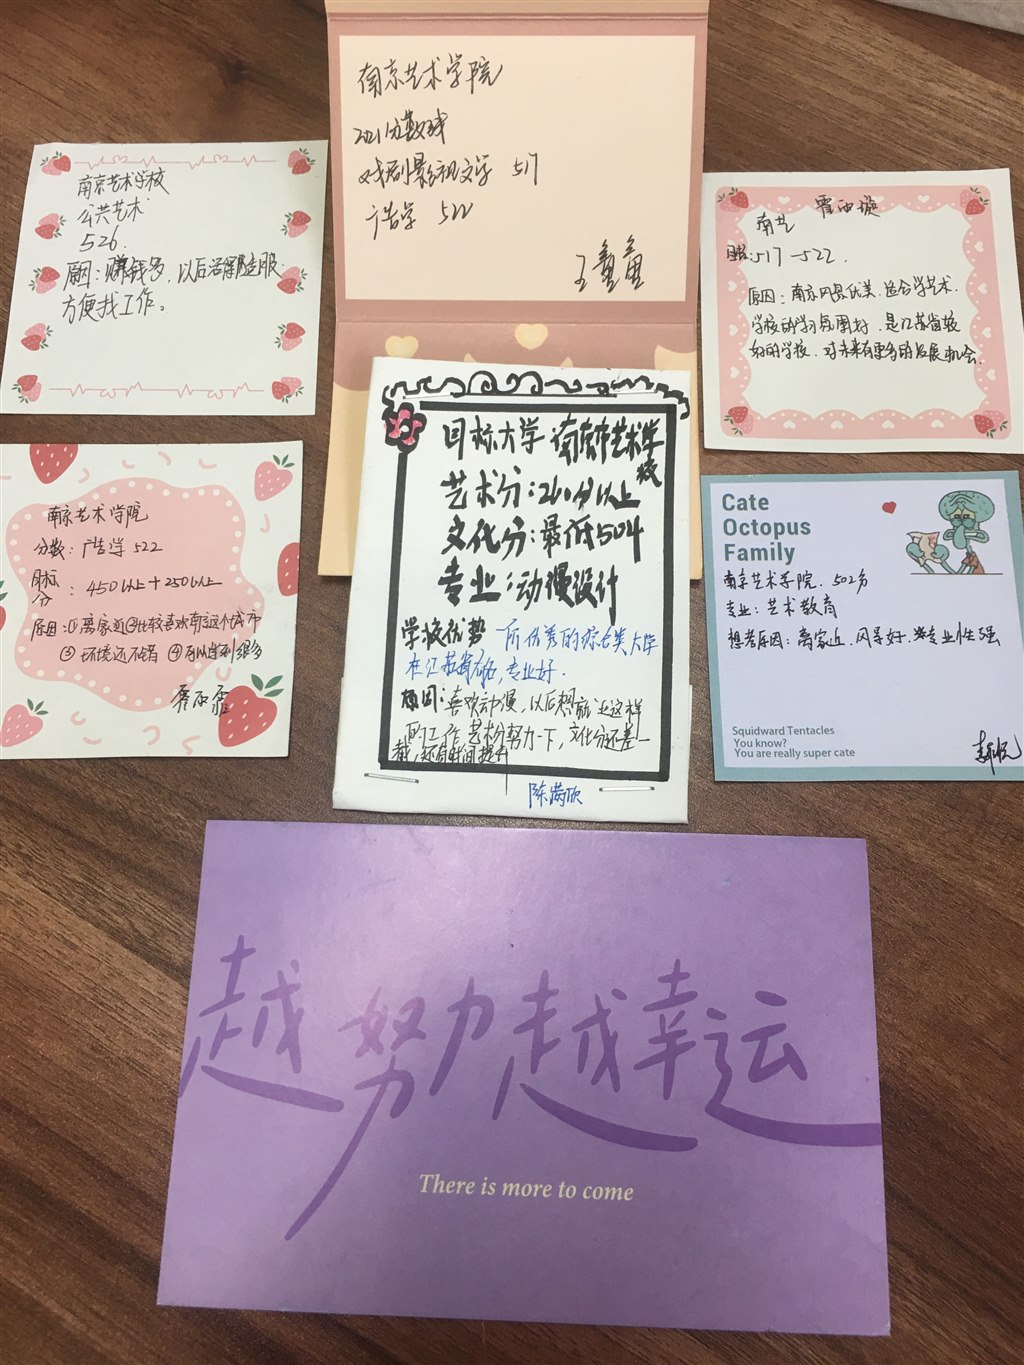 南京艺术学院
2021分数线
戏剧影视文学 517
广告学 522
王
南京艺术学校
公共艺术
526.
原因:赚钱多,以后治保险起服
方便找工作。
南艺
517-522.
原因:南京风景优美.适合学艺术.
学校的学习氛围好.是江苏省较
好的学校.对未来有更多的发展机会.
南京艺术学院
分数:广告学 522
目标
分:450以上+250以上
原因:①离家近②比较喜欢南京这个城市
③环境还不错 ④可以学到很多
目标大学:南京市艺术学
校
艺术分:260分以上
文化分:最低504
专业:动漫设计
学校优势 所优秀的综合类大学
在江苏省有名,专业好.
原因:喜欢动漫,以后想就业这样
的工作 艺术分努力一下,文化分还差一
截,还有时间提升
陈满欣
Cate
Octopus
Family
南京艺术学院.502分
专业:艺术教育
想考原因:离家近.风景好.专业性强
Squidward Tentacles
You know?
You are really super cate
越努力越幸运
There is more to come